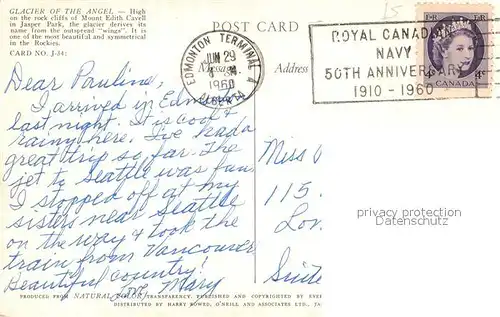 GLACIER OF THE ANGEL — High
on the rock cliffs of Mount Edith Cavell
in Jasper Park, the glacier derives its
name from the outspread "wings". It is
one of the most beautiful and symmetrical
in the Rockies.
CARD NO. J-34:
POST CARD
Message
Address
EDMONTON TERMINAL A
JUN 29
1960
ALBERTA
ROYAL CANADIAN
NAVY
50TH ANNIVERSARY
1910 - 1960
4c
CANADA
Dear Pauline,
I arrived in Edmonton
last night. It is cool &
rainy here. I've had a
great trip so far. The
jet to Seattle was fun.
I stopped off at my
sisters near Seattle
on the way & took the
train from Vancouver
Beautiful country!
Love Mary
Miss
115
Lon
Suite
privacy protection
Datenschutz
PRODUCED FROM NATURAL COLOR TRANSPARENCY, PUBLISHED AND COPYRIGHTED BY
DISTRIBUTED BY HARRY ROWED, O'NEILL AND ASSOCIATES LTD., JA